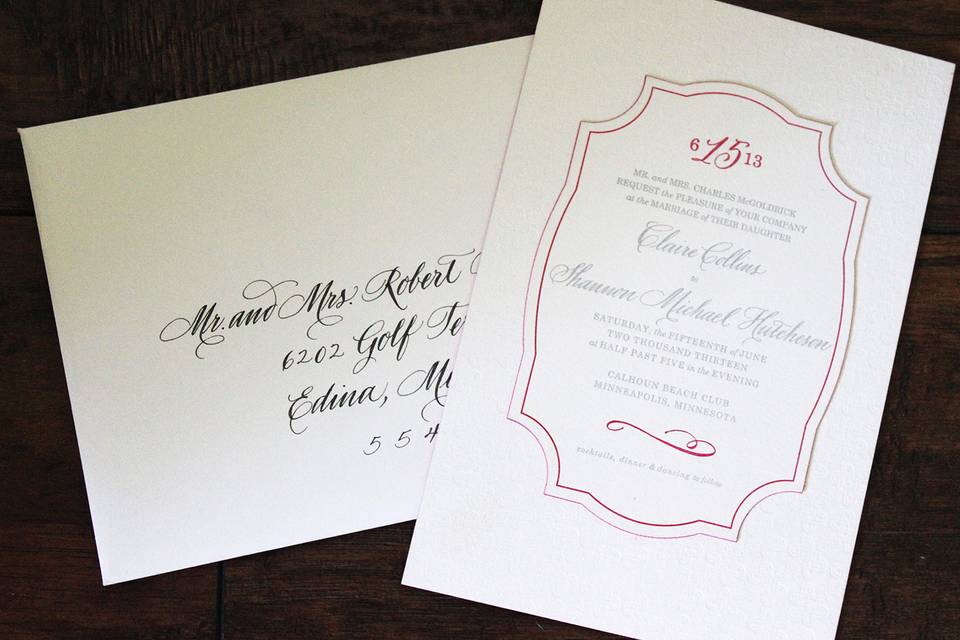 Mr. and Mrs. Robert
6202 Golf
Edina,
554
6 15 13
MR. and MRS. CHARLES McGOLDRICK
REQUEST the PLEASURE of YOUR COMPANY
at the MARRIAGE of THEIR DAUGHTER
Claire Collins
to
Shannon Michael Hutcheson
SATURDAY, the FIFTEENTH of JUNE
TWO THOUSAND THIRTEEN
at HALF PAST FIVE in the EVENING
CALHOUN BEACH CLUB
MINNEAPOLIS, MINNESOTA
cocktails, dinner & dancing to follow